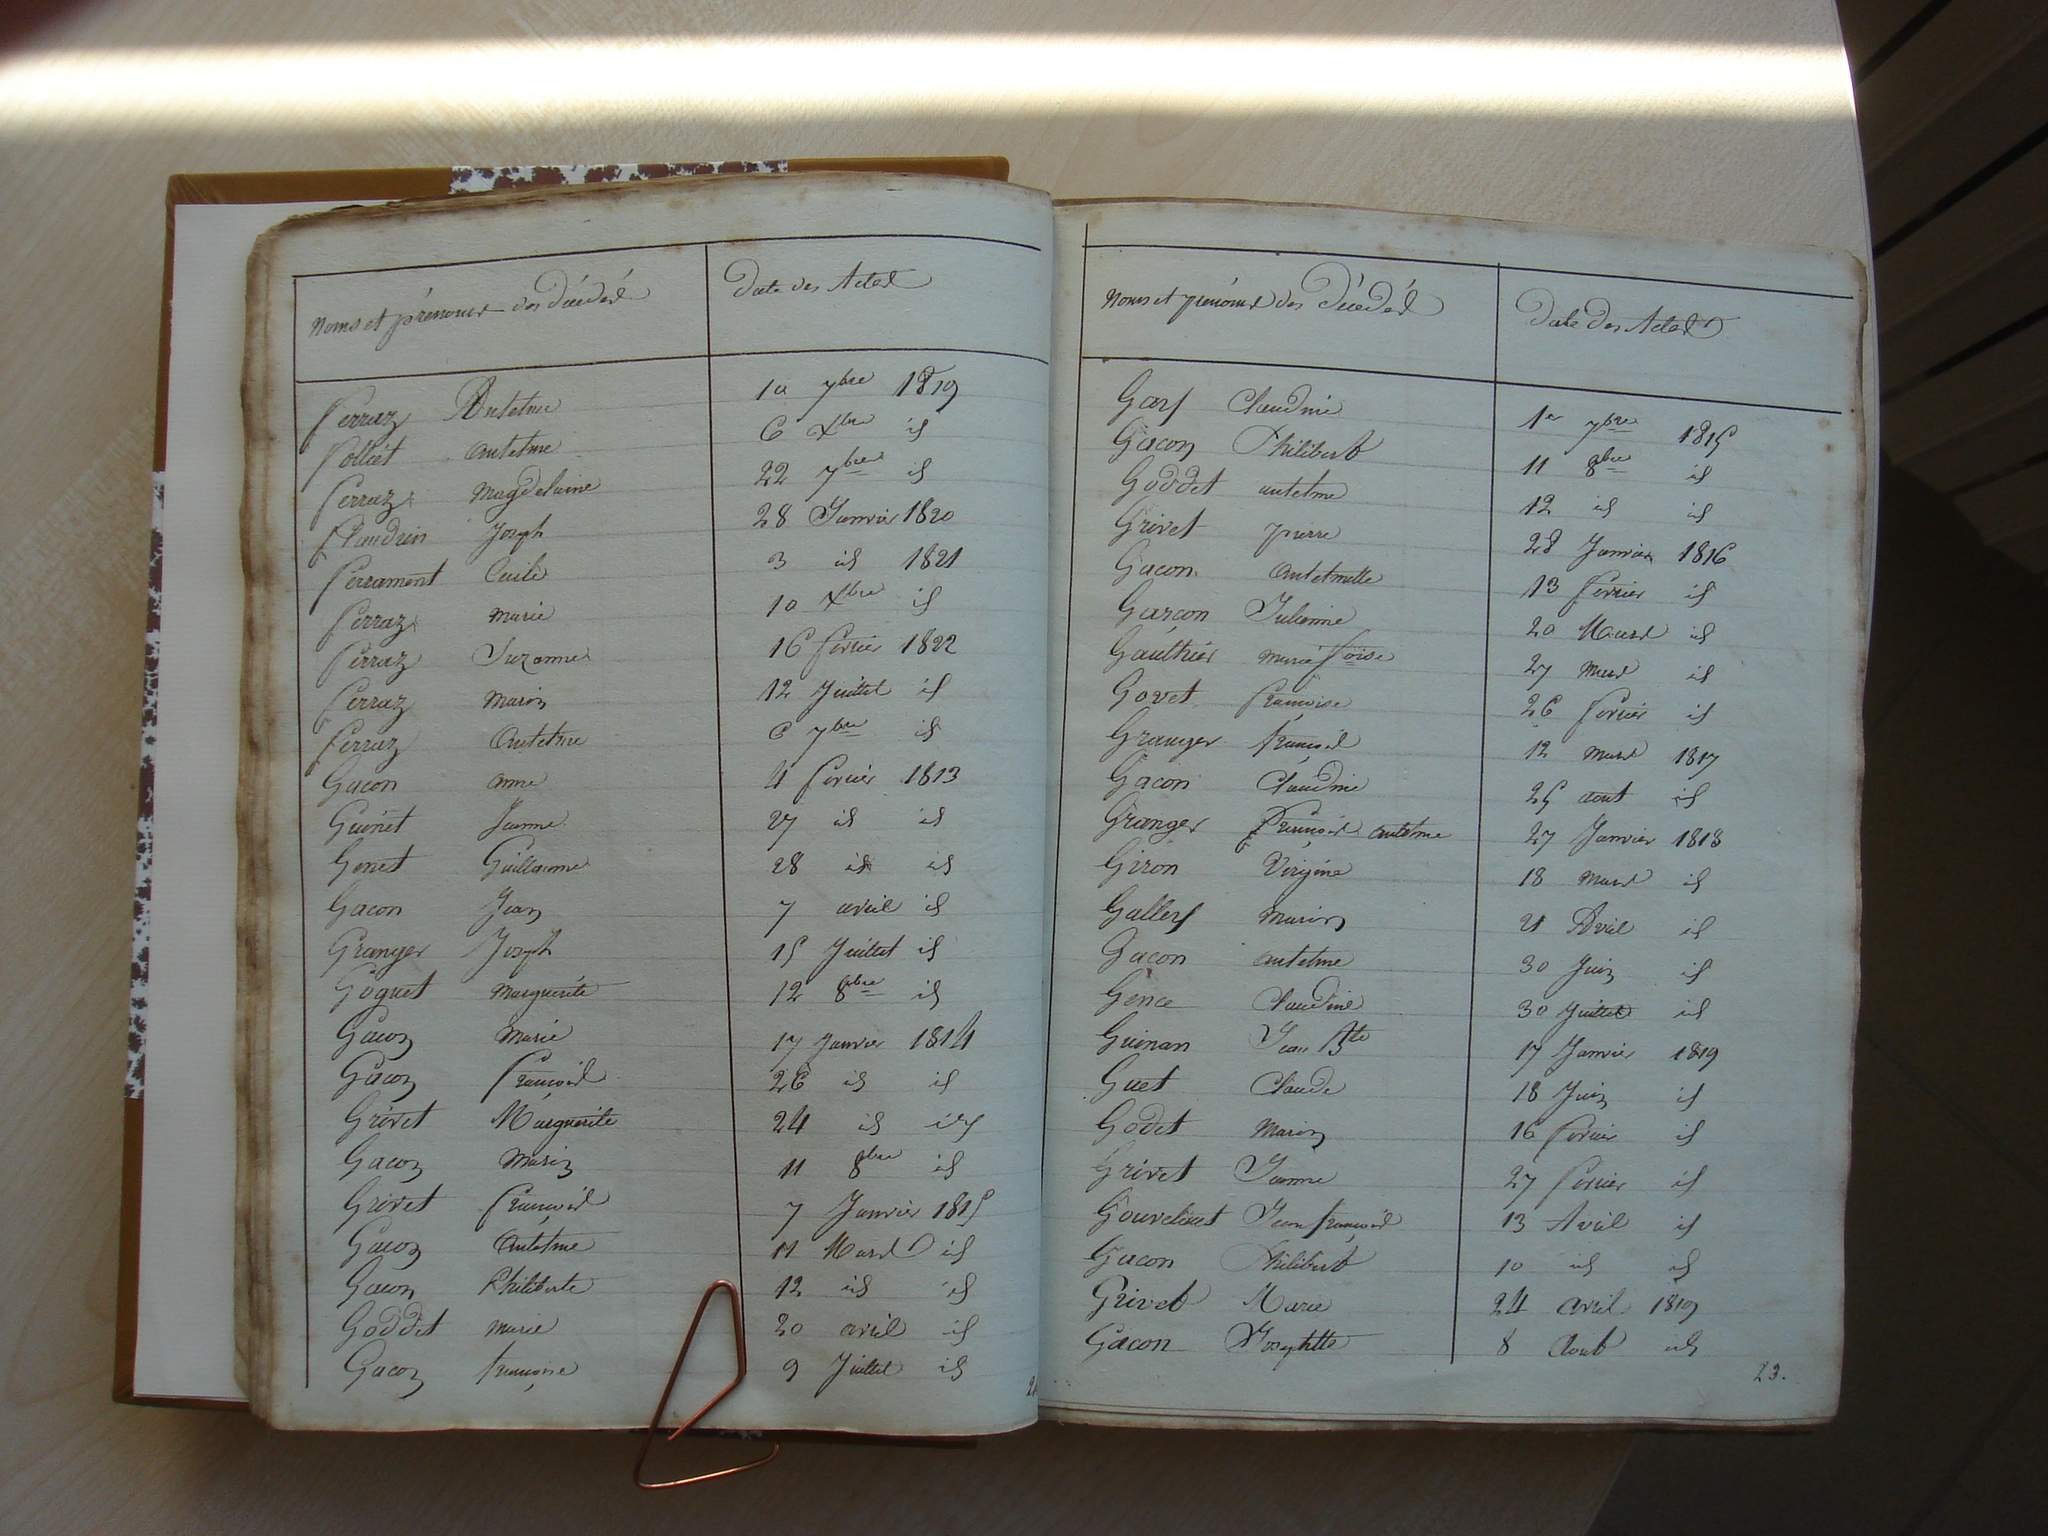 Noms et prénoms des décédés Date des Actes
ferraz Antelme 10 7bre 1819
follièt antelme 6 Xbre id
ferraz Magdelaine 22 7bre id
flandrin Joseph 28 Janvier 1820
ferrament Cécile 3 id 1821
ferraz Marie 10 Xbre id
ferraz Suzanne 16 février 1822
ferraz Marin 12 Juillet id
ferraz Antelme 6 7bre id
Gacon anne 4 février 1813
Guinet Jeanne 27 id id
Genet Guillaume 28 id id
Gacon Jean 7 avril id
Granger Joseph 15 Juillet id
Goguet Marguerite 12 8bre id
Gacon Marie 17 Janvier 1814
Gacon françois 26 id id
Grivet Marguerite 24 id id
Gacon Marin 11 8bre id
Grivet françois 7 Janvier 1815
Gacon Antelme 11 Mars id
Gacon Philiberte 12 id id
Goddet marie 20 avril id
Gacon françoise 9 Juillet id
Noms et prénoms des Décédés Date des Actes
Claudine 1er 7bre 1815
Gacon Philibert 11 8bre id
Goddet antelme 12 id id
Grivet pierre 28 Janvier 1816
Gacon Antelmette 13 février id
Garcon Julienne 20 Mars id
Gaulthier marie foise 27 mars id
Govet françoise 26 février id
Granger françois 12 mars 1817
Gacon Claudine 25 aout id
Granger François antelme 27 Janvier 1818
Giron Virginie 18 mars id
Marin 21 Avril id
Gacon antelme 30 Juin id
Gence Claudine 30 Juillet id
Guinan Jean Bte 17 Janvier 1819
Guet Claude 18 Juin id
Godet Marin 16 février id
Grivet Jeanne 27 février id
Jean françois 13 Avril id
Gacon Philibert 10 id id
Grivet Marie 24 avril 1819
Gacon Josephte 8 Aout id
23.